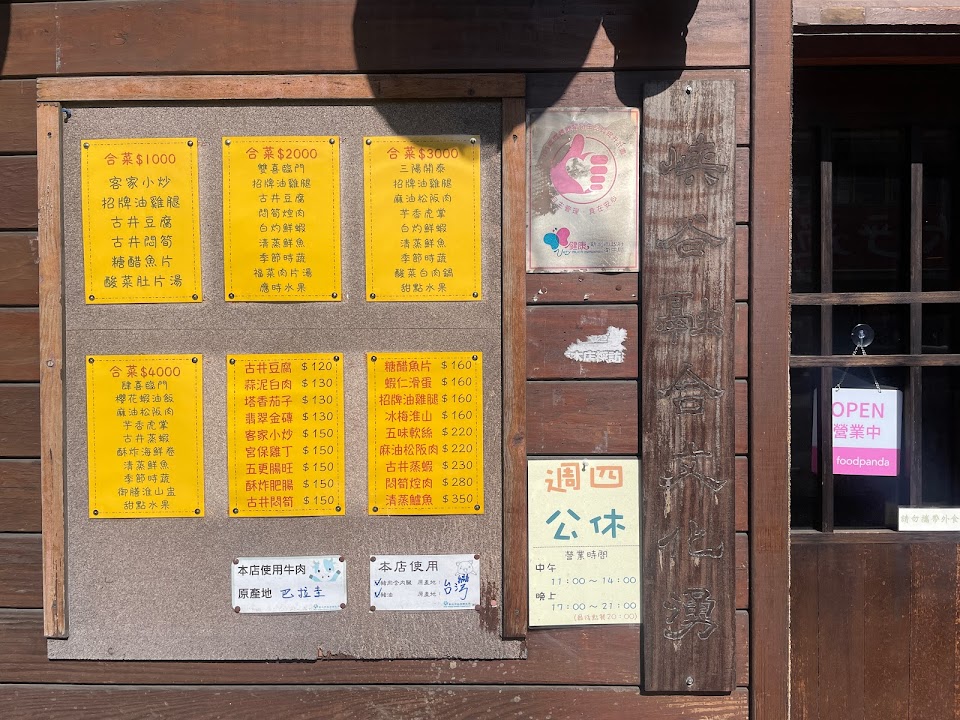 合菜$1000
客家小炒
招牌油雞腿
古井豆腐
古井悶筍
糖醋魚片
酸菜肚片湯
合菜$2000
雙喜臨門
招牌油雞腿
古井豆腐
悶筍焢肉
白灼鮮蝦
清蒸鮮魚
季節時蔬
福菜肉片湯
應時水果
合菜$3000
三陽開泰
招牌油雞腿
麻油松阪肉
芋香虎掌
白灼鮮蝦
清蒸鮮魚
季節時蔬
酸菜白肉鍋
甜點水果
合菜$4000
肆喜臨門
櫻花蝦油飯
麻油松阪肉
芋香虎掌
古井蒸蝦
酥炸海鮮卷
清蒸鮮魚
季節時蔬
御膳淮山盅
甜點水果
古井豆腐 $120
蒜泥白肉 $130
塔香茄子 $130
翡翠金磚 $130
客家小炒 $150
宮保雞丁 $150
五更腸旺 $150
酥炸肥腸 $150
古井悶筍 $150
糖醋魚片 $160
蝦仁滑蛋 $160
招牌油雞腿 $160
冰梅淮山 $160
五味軟絲 $220
麻油松阪肉 $220
古井蒸蝦 $230
悶筍焢肉 $280
清蒸鱸魚 $350
本店使用牛肉
原產地 巴拉圭
本店使用
豬肉含內臟 原產地:
豬油 原產地:
台灣
健康
本店採訪
週四
公休
營業時間
中午
11:00~14:00
晚上
17:00~21:00
(最後點餐20:00)
合融合文化湧
OPEN
營業中
foodpanda
請勿攜帶外食